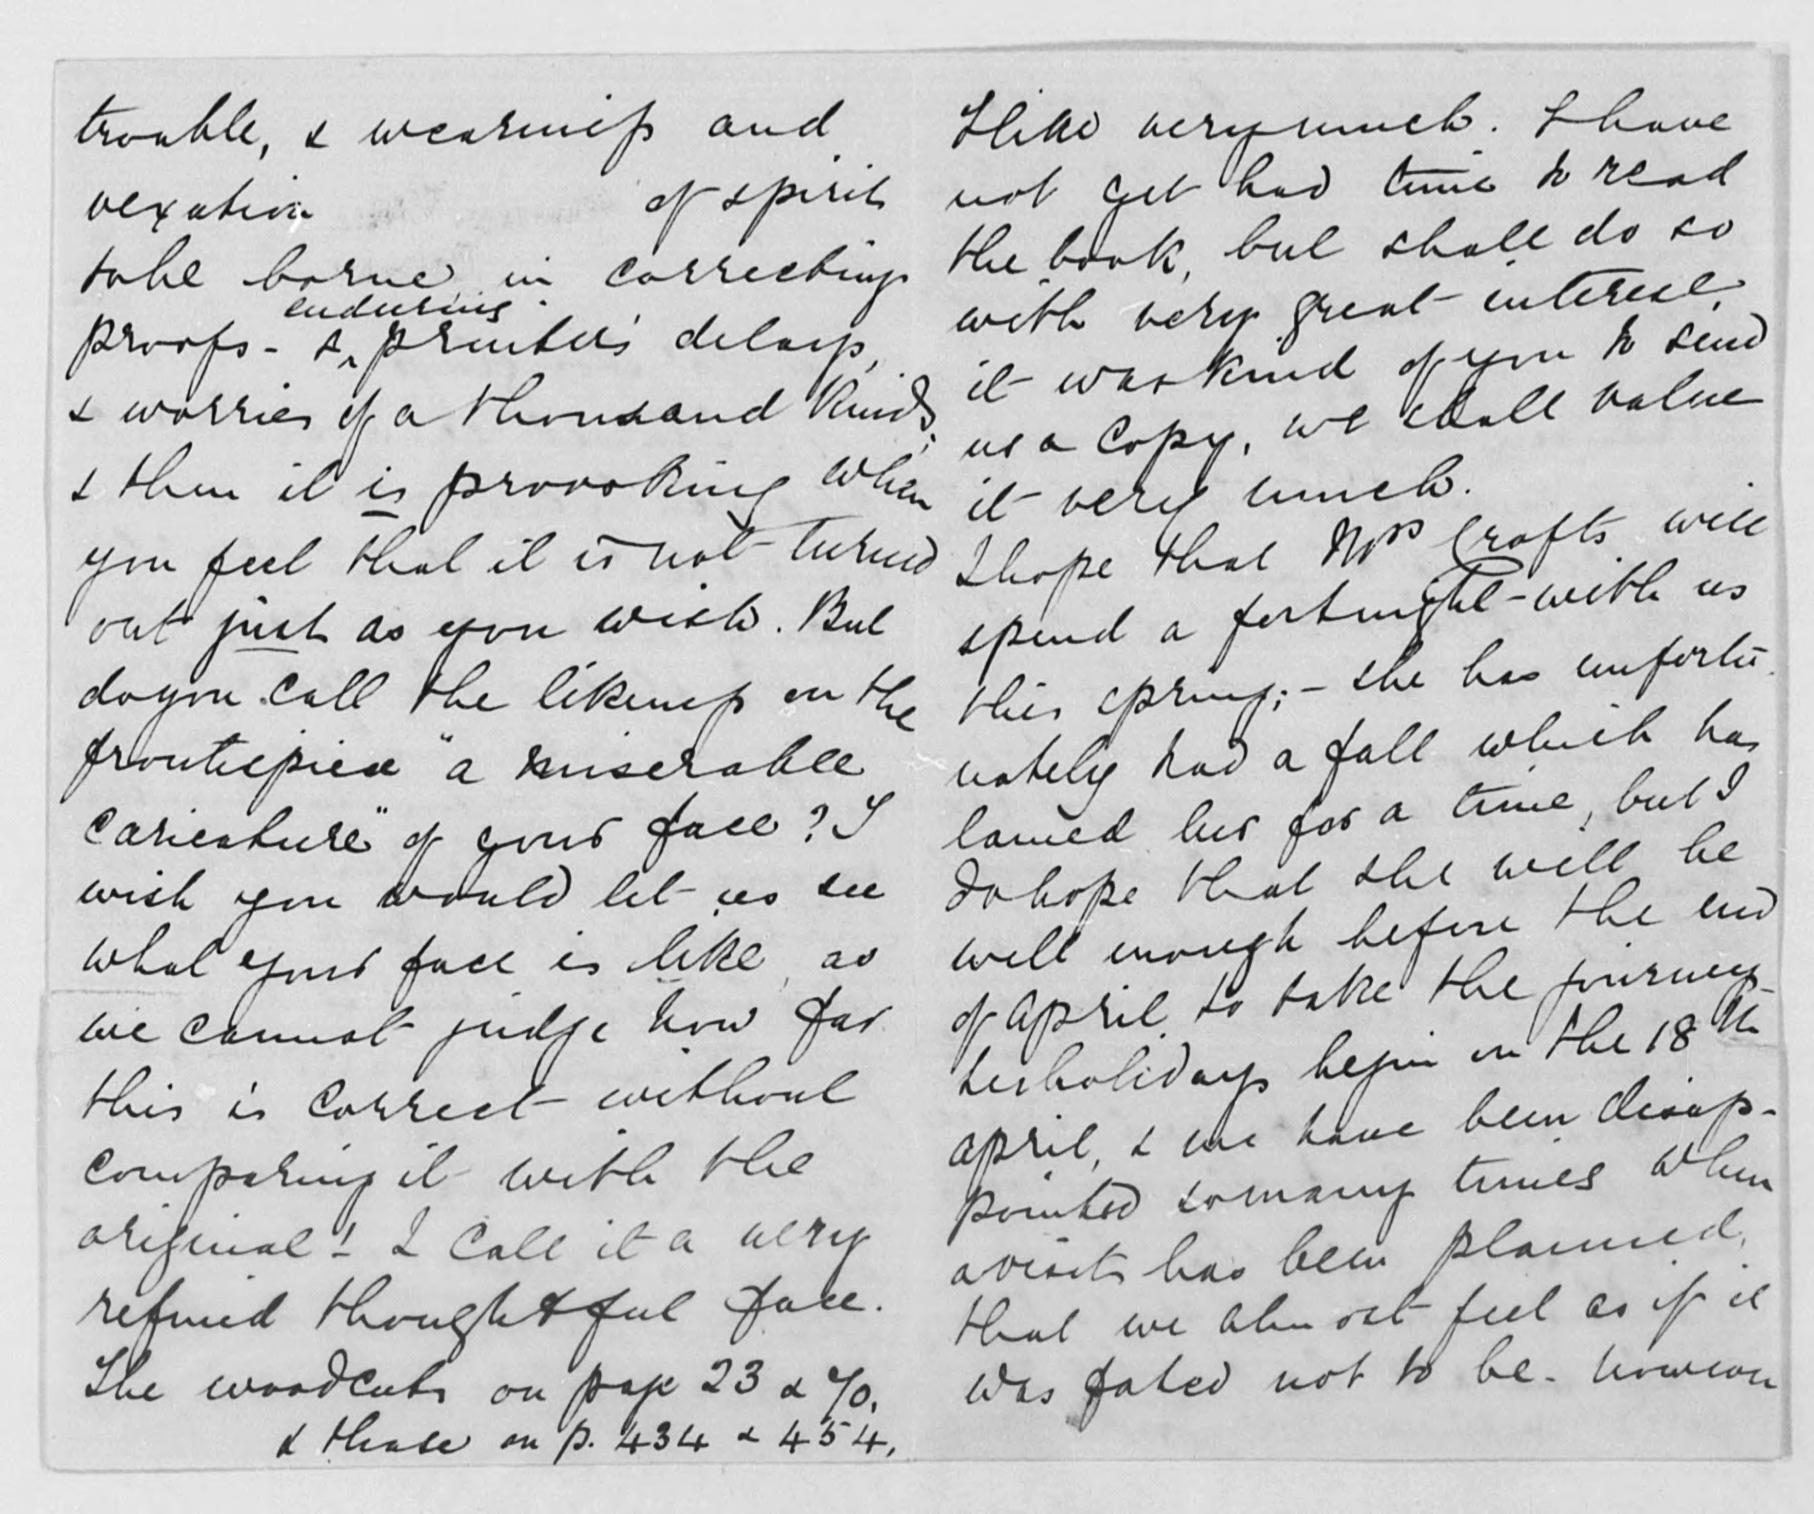 trouble, & weariness and
vexation of spirit
to be borne in correcting
enduring
proofs - & ^ printer's delays,
& worries of a thousand kinds;
& then it is provoking when
you feel that it is not turned
out just as you wish. But
do you call the likeness on the
frontispiece "a miserable
caricature" of your face? I
wish you would let us see
what your face is like, as
we cannot judge how far
this is correct without
comparing it with the
original! I call it a very
refined thoughtful face.
The woodcuts on page 23 & 70,
& those on p. 434 & 454,
I like very much. I have
not yet had time to read
the book, but shall do so
with very great interest,
it was kind of you to send
us a copy, we shall value
it very much.
I hope that Mrs Crafts will
spend a fortnight - with us
this spring; - she has unfortu
nately had a fall which has
lamed her for a time, but I
do hope that she will be
well enough before the end
of April to take the journey -
her holidays begin on the 18th
April, & we have been disap-
pointed so many times when
a visit has been planned,
that we almost feel as if it
was fated not to be - however